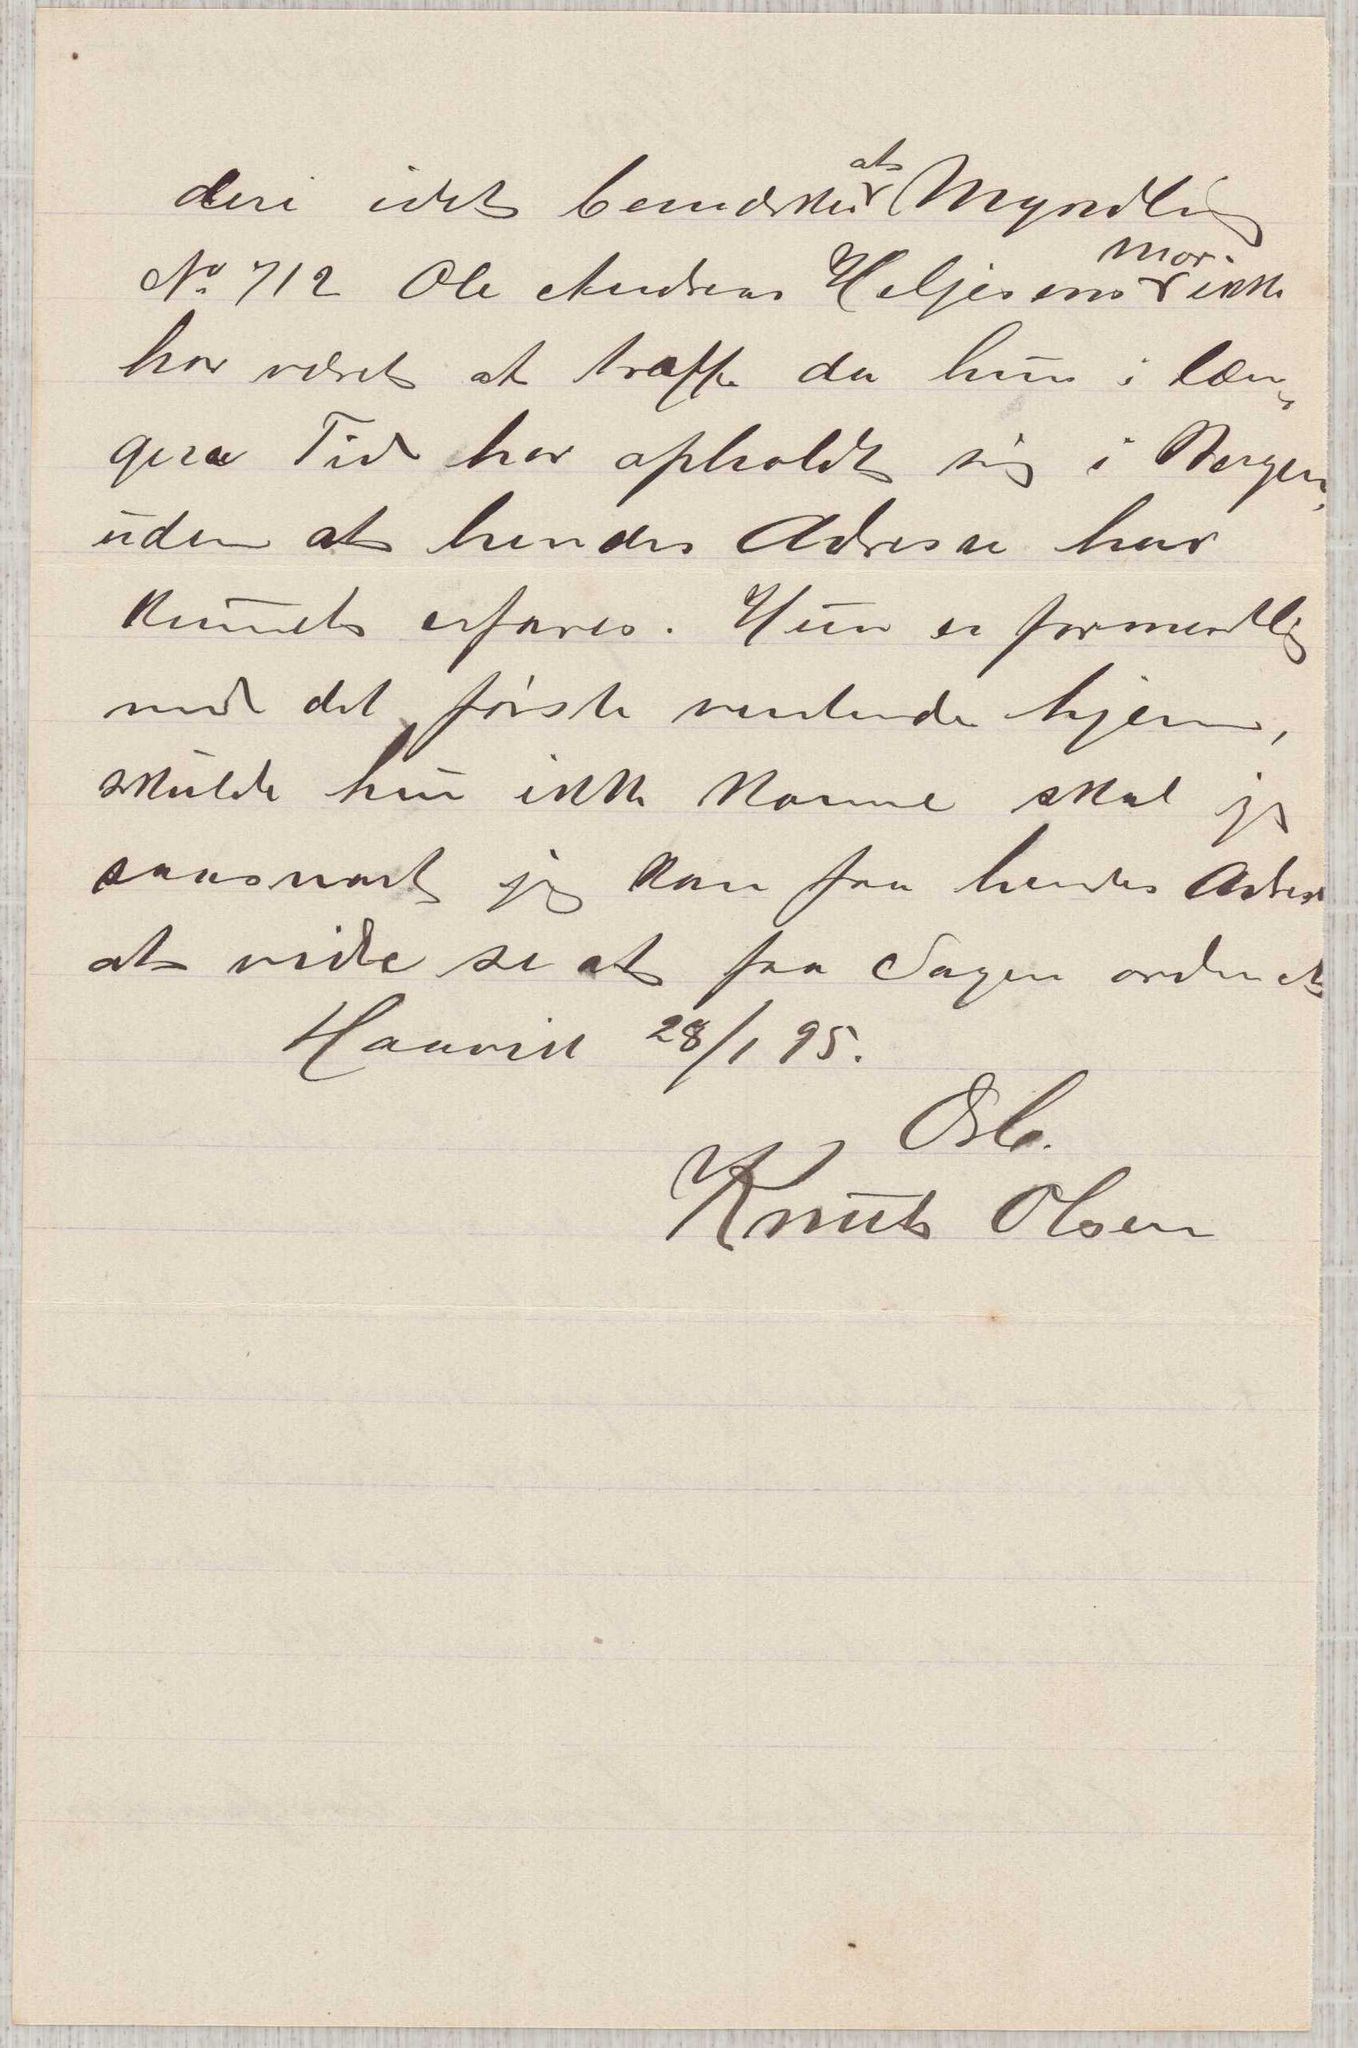 deri idet bemærkes at Myndling
No. 712 Ole Andreas Heljesens mor ikke
har været at træffe da hun i læn-
gere Tid har opholdt sig i Bergen,
uden at hendes Adresse har
kunnet erfares. Hun er formentlig
med det første ventende hjem,
skulde hun ikke komme skal jeg
saasnart jeg kan faa hendes Adresse
at vide se at faa Sagen ordnet
Haavik 28/1 95.
Erb.
Knut Olsen